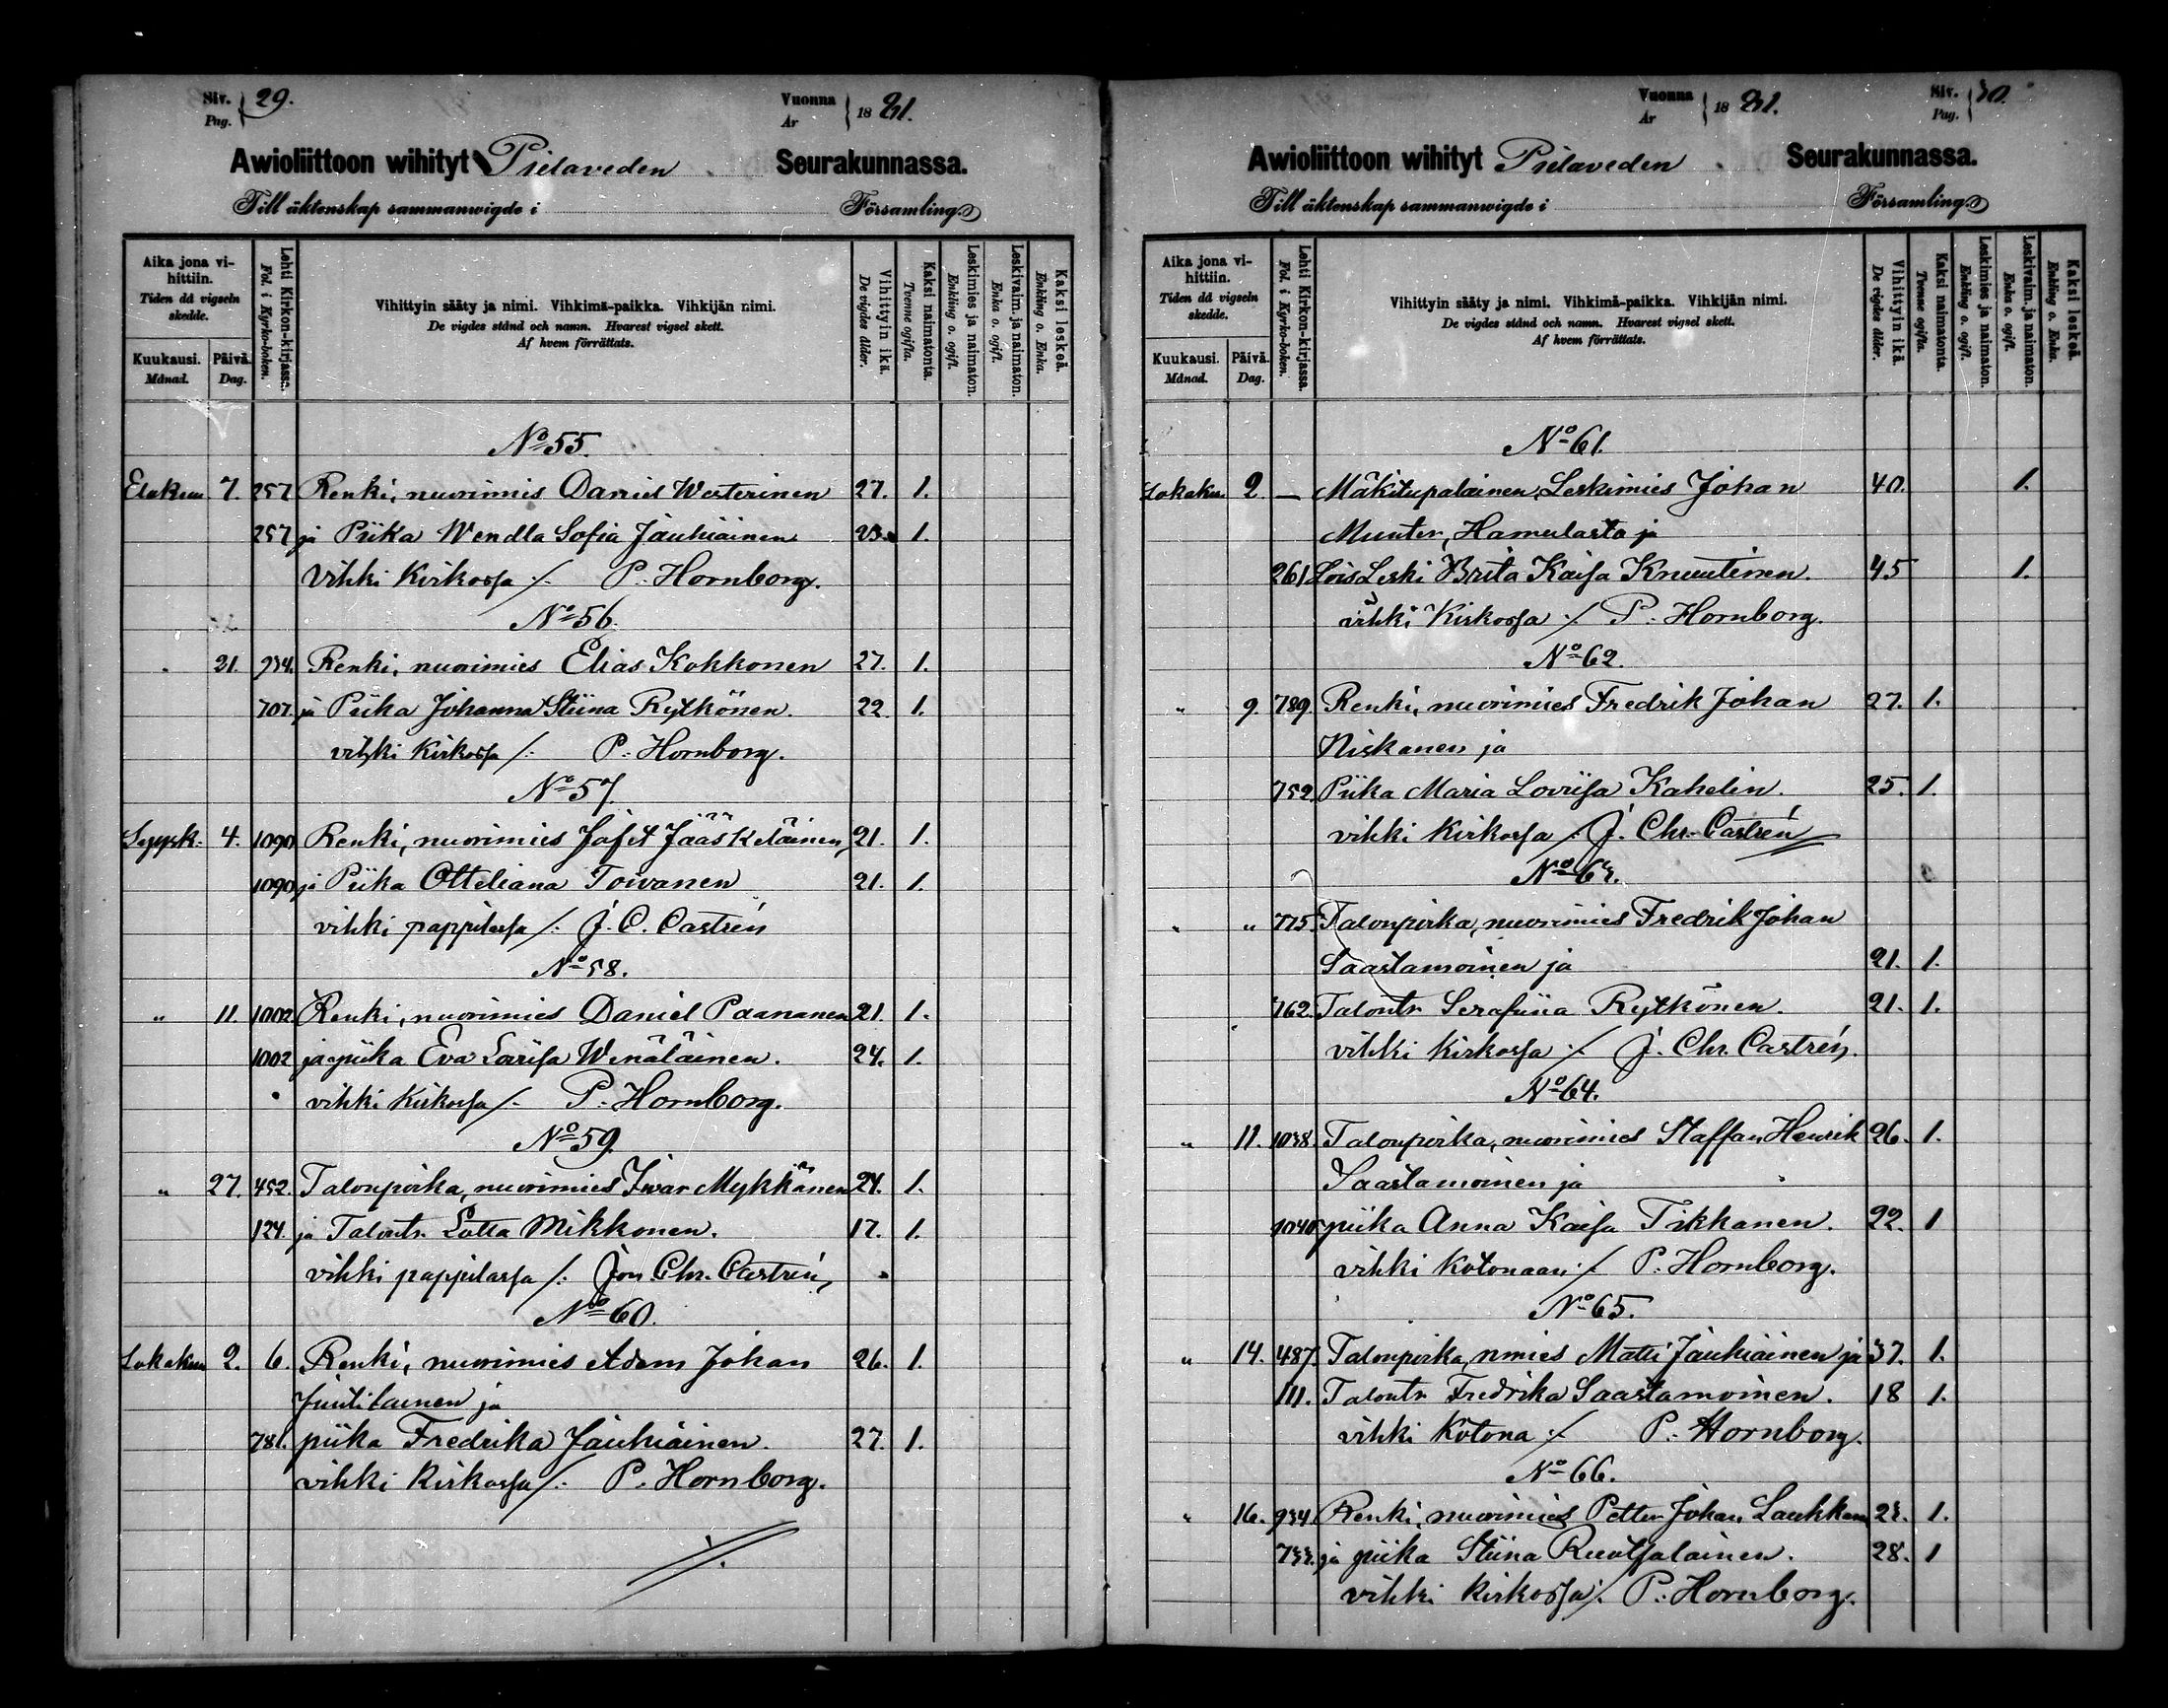 Siv. 29.
Pag.
Vuonna 1881.
År
Awioliittoon wihityt Pielaveden Seurakunnassa.
Till äktenskap sammanwigde i Församling
Aika jona vihittiin.
Tiden då vigseln skedde.
Kuukausi. Månad.
Päivä. Dag.
Lehti Kirkon-kirjassa.
Fol. i Kyrko-boken.
Vihittyin sääty ja nimi. Vihkimä-paikka. Vihkijän nimi.
De vigdes stånd och namn. Hvarest vigsel skett.
Af hvem förrättats.
Vihittyin ikä.
De vigdes ålder.
Kaksi naimatonta.
Tvenne ogifta.
Leskimies ja naimaton.
Enkling o. ogift.
Leskivaim. ja naimaton.
Enka o. ogift.
Kaksi leskeä.
Enkling o. Enka.
No 55.
Elokuu 7. 257 Renki, nuorimies Daniel Westerinen 27. 1.
257 ja Piika Wendla Sofia Jauhiainen 23. 1.
vihki Kirkossa /. P. Hornborg.
No 56.
" 21. 934. Renki, nuorimies Elias Kokkonen 27. 1.
707. ja Piika Johanna Stiina Rytkönen. 22 1.
vihki Kirkossa /. P. Hornborg.
No 57.
Syysk. 4. 1090 Renki, nuorimies Jafet Jääskeläinen, 21. 1.
1090 ja Piika Otteliana Toivanen 21. 1.
vihki pappilassa /. J. C. Castrén
No 58.
" 11. 1002 Renki, nuorimies Daniel Paananen 21. 1.
1002 ja piika Eva Lovisa Wenäläinen. 24. 1.
vihki Kirkossa /. P. Hornborg.
No 59.
" 27. 452. Talonpoika, nuorimies Iwar Mykkänen 24. 1.
124. ja Talontr. Lotta Mikkonen. 17. 1.
vihki pappilassa /. Jon. Chr. Castrén,
No 60.
Lokakuu 2. 6. Renki, nuorimies Adam Johan 26. 1.
Juutilainen ja
781. piika Fredrika Jauhiainen. 27. 1.
vihki Kirkossa /. P. Hornborg.
Vuonna 1881.
År
Siv. 30.
Pag.
Awioliittoon wihityt Pielaveden Seurakunnassa.
Till äktenskap sammanwigde i Församling
Aika jona vihittiin.
Tiden då vigseln skedde.
Kuukausi. Månad.
Päivä. Dag.
Lehti Kirkon-kirjassa.
Fol. i Kyrko-boken.
Vihittyin sääty ja nimi. Vihkimä-paikka. Vihkijän nimi.
De vigdes stånd och namn. Hvarest vigsel skett.
Af hvem förrättats.
Vihittyin ikä.
De vigdes ålder.
Kaksi naimatonta.
Tvenne ogifta.
Leskimies ja naimaton.
Enkling o. ogift.
Leskivaim. ja naimaton.
Enka o. ogift.
Kaksi leskeä.
Enkling o. Enka.
No 61.
Lokaku. 2. — Mäkitupalainen, Leskimies Johan 40. 1.
Munter, Hamulasta ja
261 Lois Leski Brita Kaisa Knuutinen. 45 1.
vihki Kirkossa /. P. Hornborg.
No 62.
" 9. 789. Renki, nuorimies Fredrik Johan 27. 1.
Niskanen ja
752. Piika Maria Loviisa Kahelin. 25. 1.
vihki Kirkossa /. J. Chr. Castrén
No 63.
" " 775. Talonpoika, nuorimies Fredrik Johan
Saastamoinen ja 21. 1.
762. Talontr Serafiina Rytkönen. 21. 1.
vihki Kirkossa /. J. Chr. Castrén.
No 64.
" 11. 1038. Talonpoika, nuorimies Staffan Henrik 26. 1.
Saastamoinen ja
1040 piika Anna Kaisa Tikkanen. 22. 1
vihki Kotonaan /. P. Hornborg.
No 65.
" 14. 487 Talonpoika, nmies Matti Jauhiainen ja 37. 1.
111. Talontr Fredrika Saastamoinen. 18 1.
vihki Kotona /. P. Hornborg.
No 66.
" 16. 934 Renki, nuorimies Petter Johan Laukkan 23. 1.
733. ja piika Stiina Ruotsalainen. 28. 1
vihki Kirkossa /. P. Hornborg.